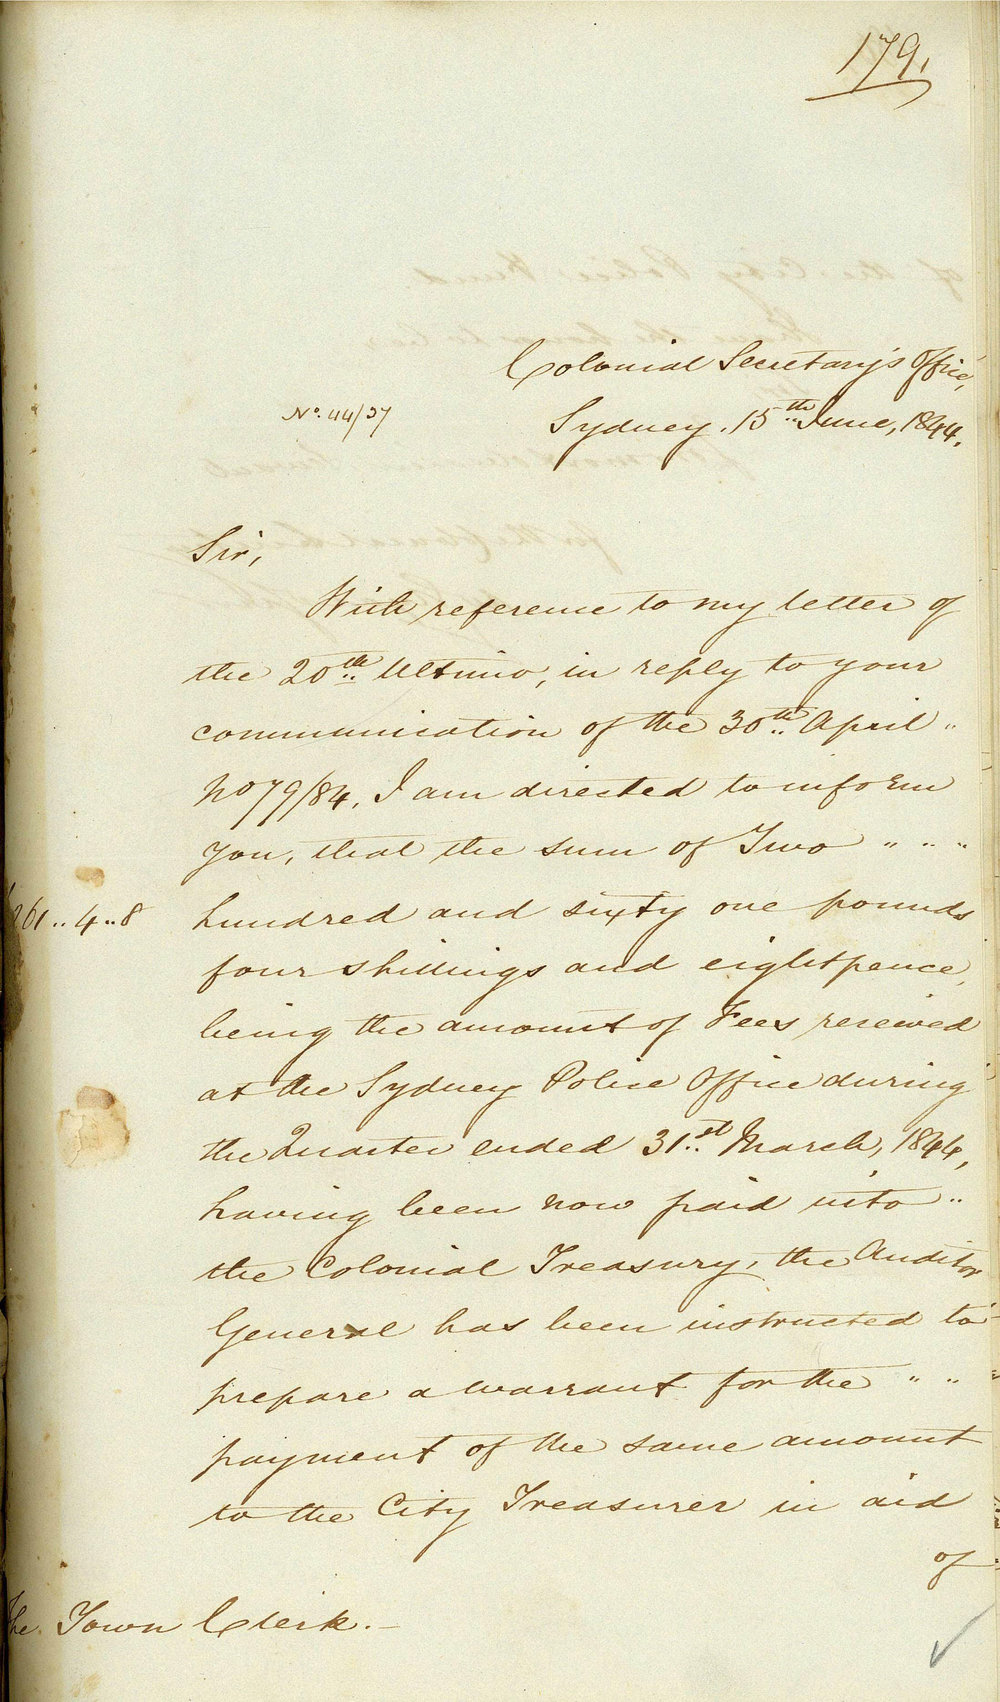 179.
Colonial Secretary's Office,
No. 44/37
Sydney, 15th June, 1844.
Sir,
With reference to my letter of
the 20th Ultimo, in reply to your
communication of the 30th April "
No 79/84, I am directed to inform
you, that the sum of Two " " "
£261 .. 4 .. 8
hundred and sixty one pounds
four shillings and eightpence,
being the amount of Fees received
at the Sydney Police Office during
the Quarter ended 31st March, 1844,
having been now paid into "
the Colonial Treasury, the Auditor
General has been instructed to
prepare a warrant for the " " "
payment of the same amount
to the City Treasurer in aid
of
The Town Clerk. —